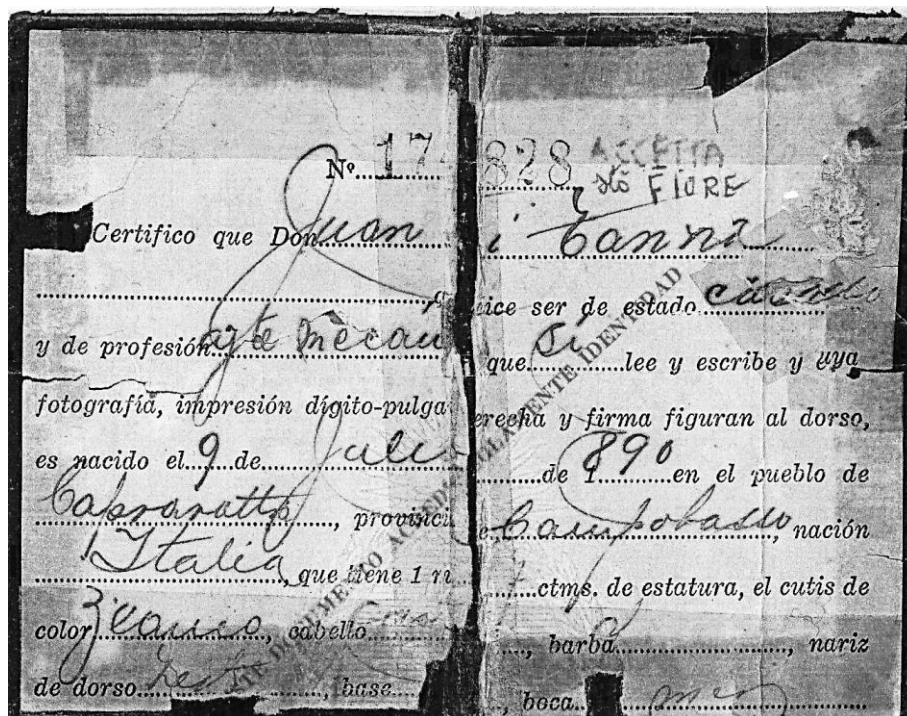 Nº 17 828 ACCETTA
FIORE
Certifico que Don Juan i Tanno
ice ser de estado casado
y de profesión ayte mecan que Si lee y escribe y uya
fotografía, impresión dígito-pulga erecha y firma figuran al dorso,
es nacido el 9 de Julio de 1890 en el pueblo de
provinci Campobasso, nación
Italia, que tiene 1 ctms. de estatura, el cutis de
color blanco, cabello barba nariz
de dorso recto, base boca
DOCUMENTO ACREDIT LLAMENTE IDENTIDAD